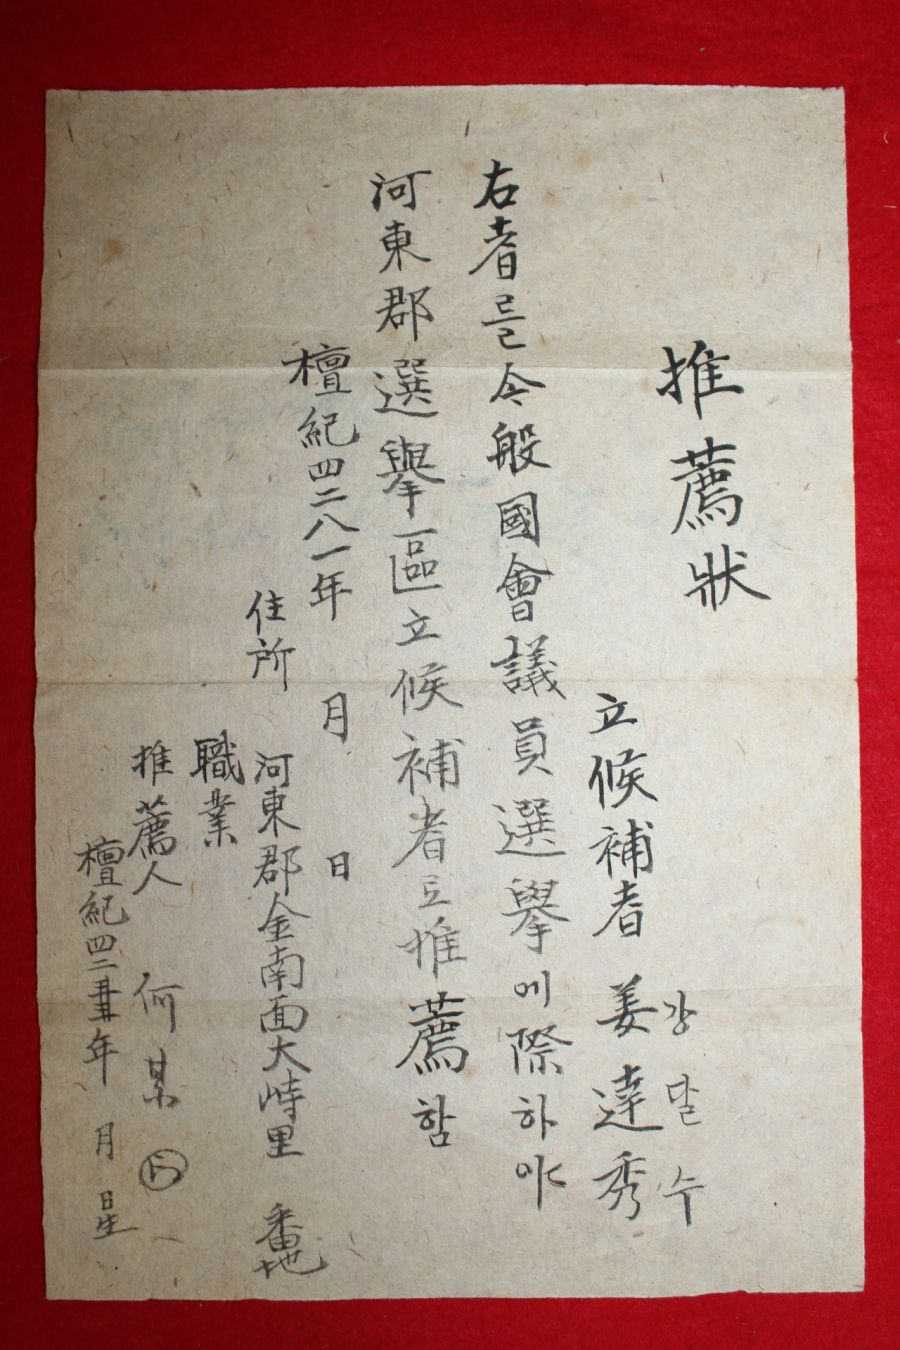 推薦狀
立候補者 姜達秀
강달수
右者를今般國會議員選擧에際하야
河東郡選擧區立候補者로推薦함
檀紀四二八一年 月 日
住所
河東郡金南面大峙里 番地
職業
推薦人 何某 印
檀紀四二 年 月